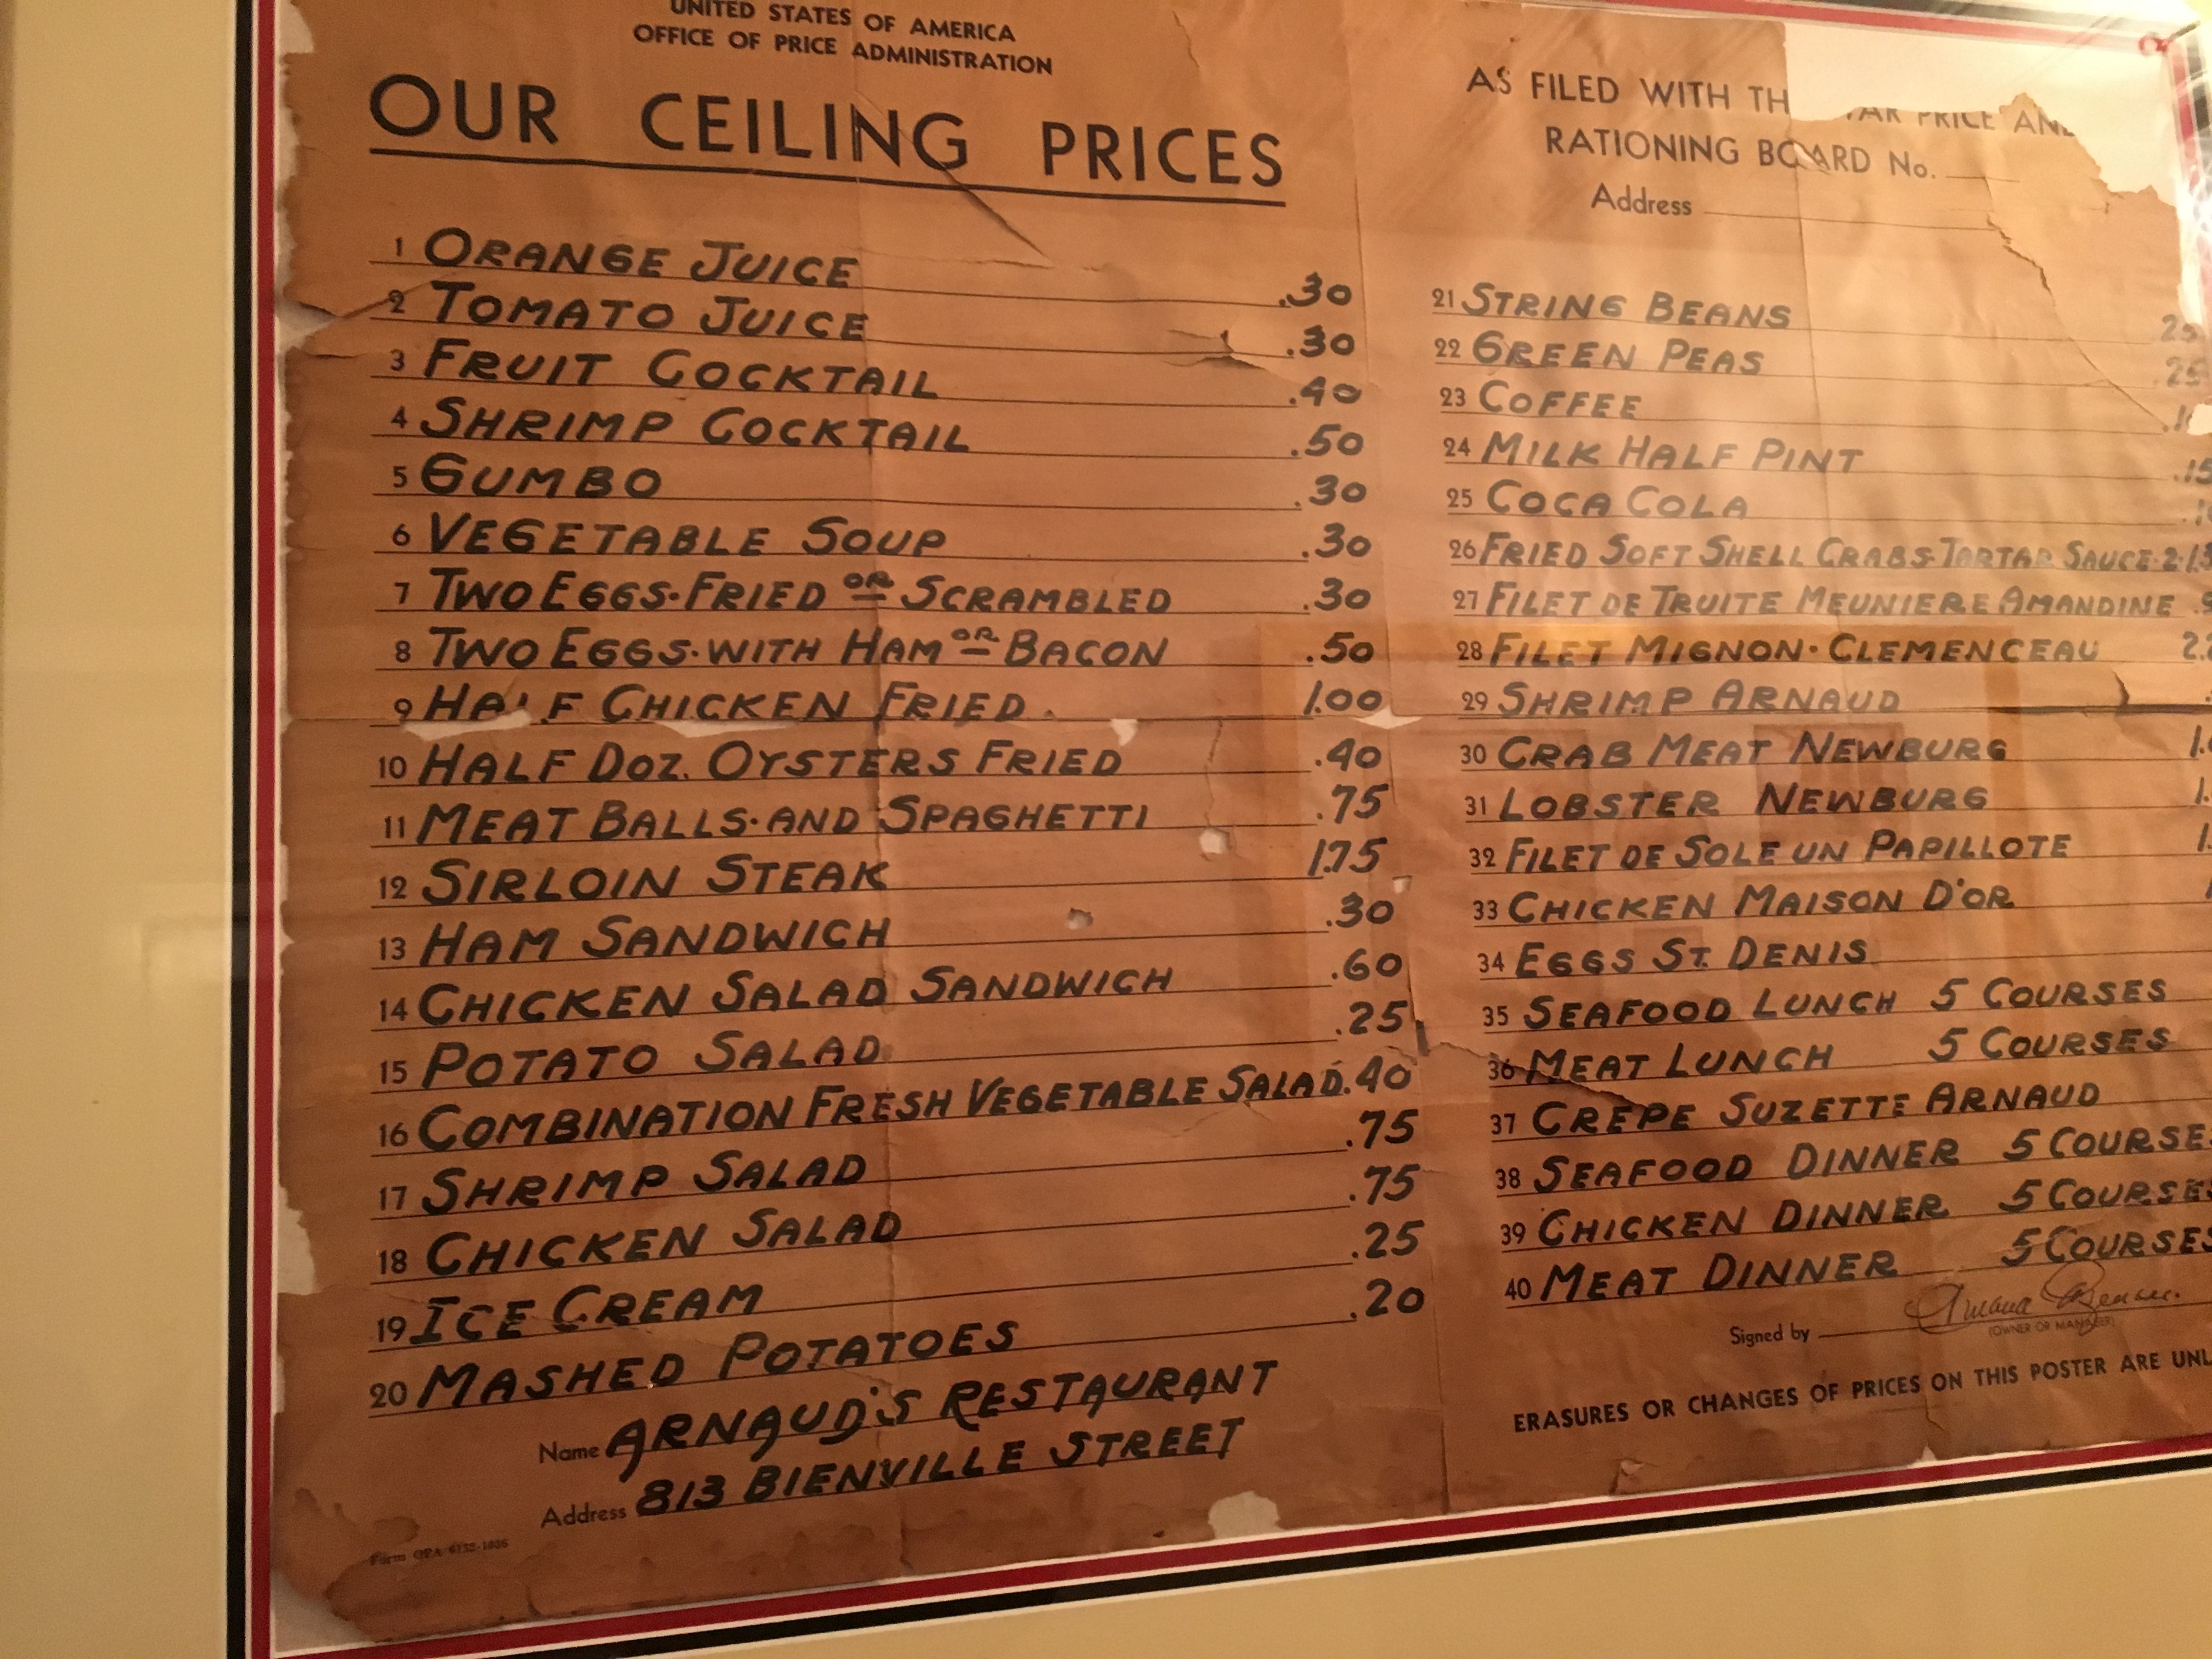 UNITED STATES OF AMERICA
OFFICE OF PRICE ADMINISTRATION
OUR CEILING PRICES
1 ORANGE JUICE .30
2 TOMATO JUICE .30
3 FRUIT COCKTAIL .40
4 SHRIMP COCKTAIL .50
5 GUMBO .30
6 VEGETABLE SOUP .30
7 TWO EGGS·FRIED OR SCRAMBLED .30
8 TWO EGGS·WITH HAM OR BACON .50
9 HALF CHICKEN FRIED. 1.00
10 HALF DOZ. OYSTERS FRIED .40
11 MEAT BALLS·AND SPAGHETTI .75
12 SIRLOIN STEAK 1.75
13 HAM SANDWICH .30
14 CHICKEN SALAD SANDWICH .60
15 POTATO SALAD .25
16 COMBINATION FRESH VEGETABLE SALAD .40
17 SHRIMP SALAD .75
18 CHICKEN SALAD .75
19 ICE CREAM .25
20 MASHED POTATOES .20
Name ARNAUD'S RESTAURANT
Address 813 BIENVILLE STREET
Form OPA 6132-1036
AS FILED WITH TH AR PRICE AND
RATIONING BOARD No.
Address
21 STRING BEANS 25
22 GREEN PEAS .25
23 COFFEE
24 MILK HALF PINT .15
25 COCA COLA
26 FRIED SOFT SHELL CRABS-TARTAR SAUCE·2·
27 FILET DE TRUITE MEUNIERE AMANDINE
28 FILET MIGNON·CLEMENCEAU 2.
29 SHRIMP ARNAUD
30 CRAB MEAT NEWBURG 1.
31 LOBSTER NEWBURG 1.
32 FILET DE SOLE UN PAPILLOTE 1.
33 CHICKEN MAISON D'OR
34 EGGS ST. DENIS
35 SEAFOOD LUNCH 5 COURSES
36 MEAT LUNCH 5 COURSES
37 CREPE SUZETTE ARNAUD
38 SEAFOOD DINNER 5 COURSES
39 CHICKEN DINNER 5 COURSES
40 MEAT DINNER 5 COURSES
Signed by
(OWNER OR MANAGER)
ERASURES OR CHANGES OF PRICES ON THIS POSTER ARE UNL